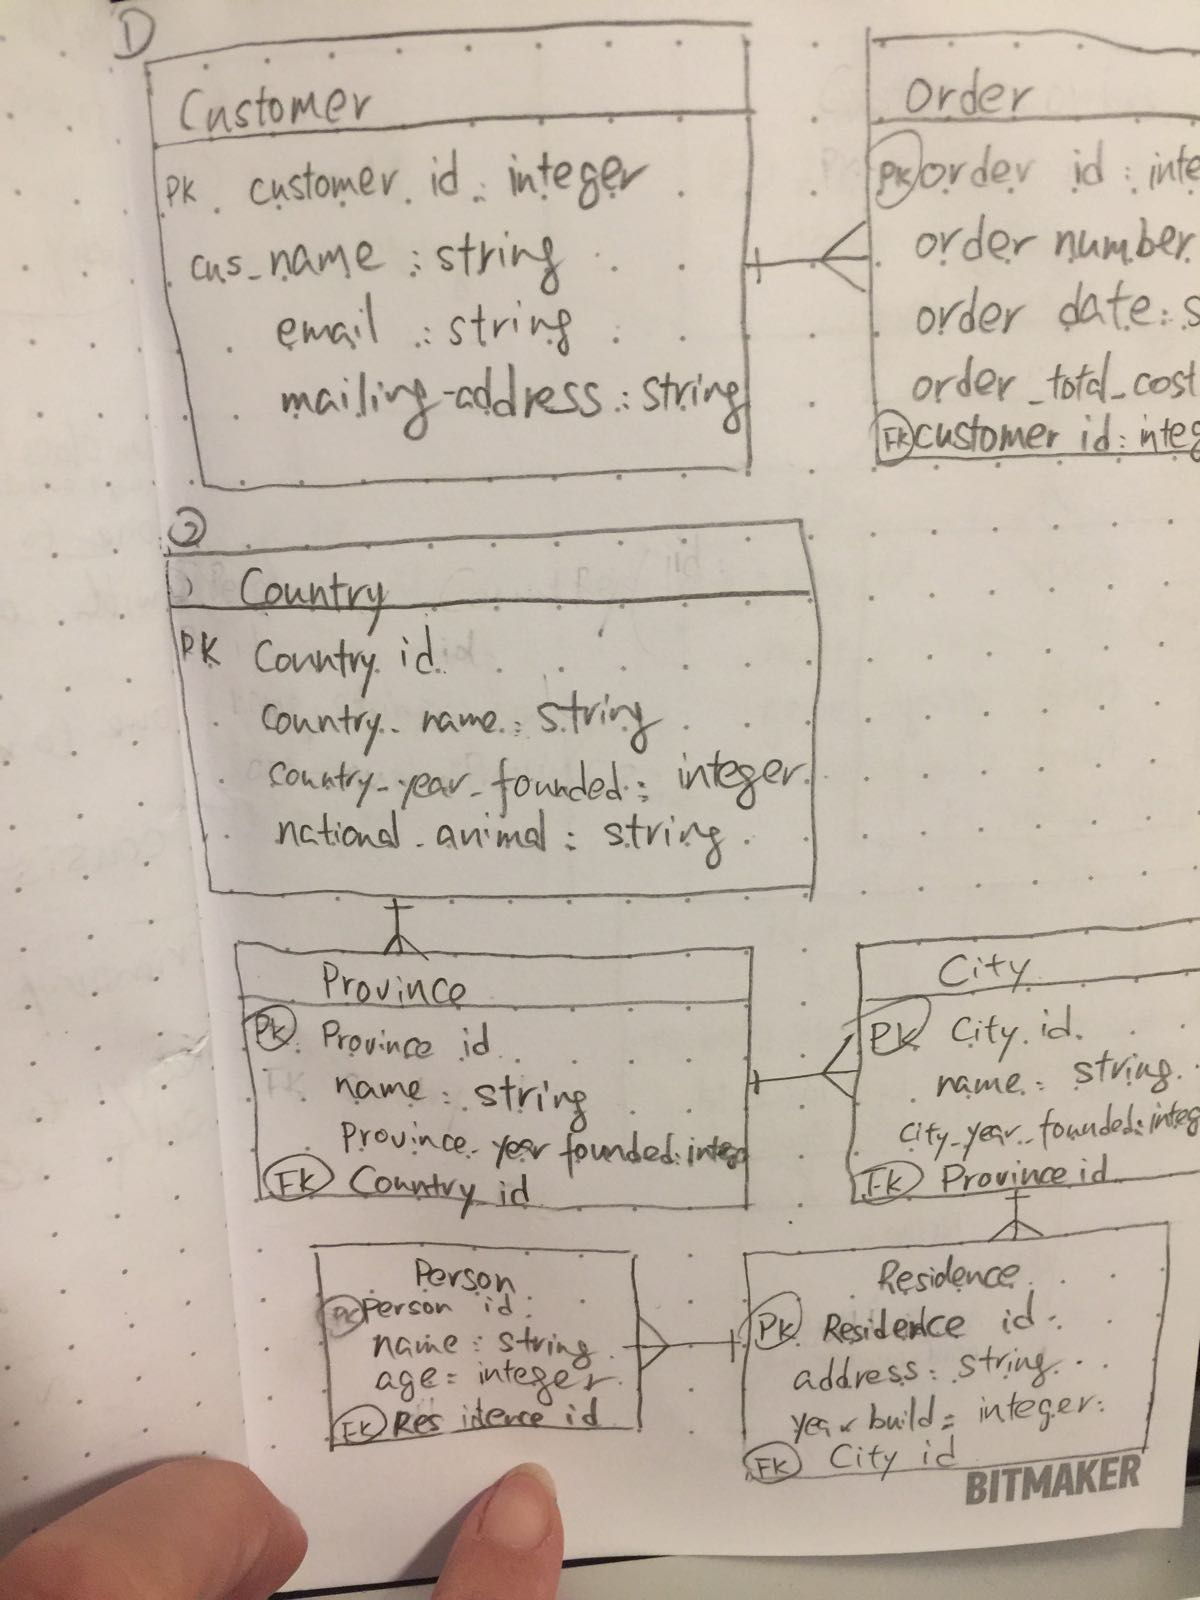 1)
Customer
PK customer id : integer
cus_name : string
email : string
mailing-address : string
Order
PK order id : inte
order number
order date : s
order_total_cost
FK customer id : integ
2
Country
PK Country id
country_name : string
country_year_founded : integer
national_animal : string
Province
PK Province id
name : string
Province_year founded : integ
FK Country id
City
PK City id
name : string
city_year_founded : integ
FK Province id
Person
PK Person id
name : string
age = integer
FK Residence id
Residence
PK Residence id
address : string
year build = integer
FK City id
BITMAKER